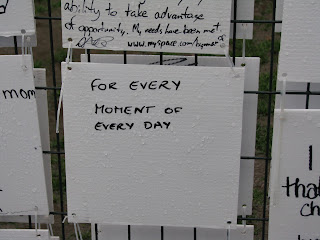 ability to take advantage
of opportunity. My needs have been met
www.myspace.com/
mom
FOR EVERY
MOMENT OF
EVERY DAY
I
that
ch